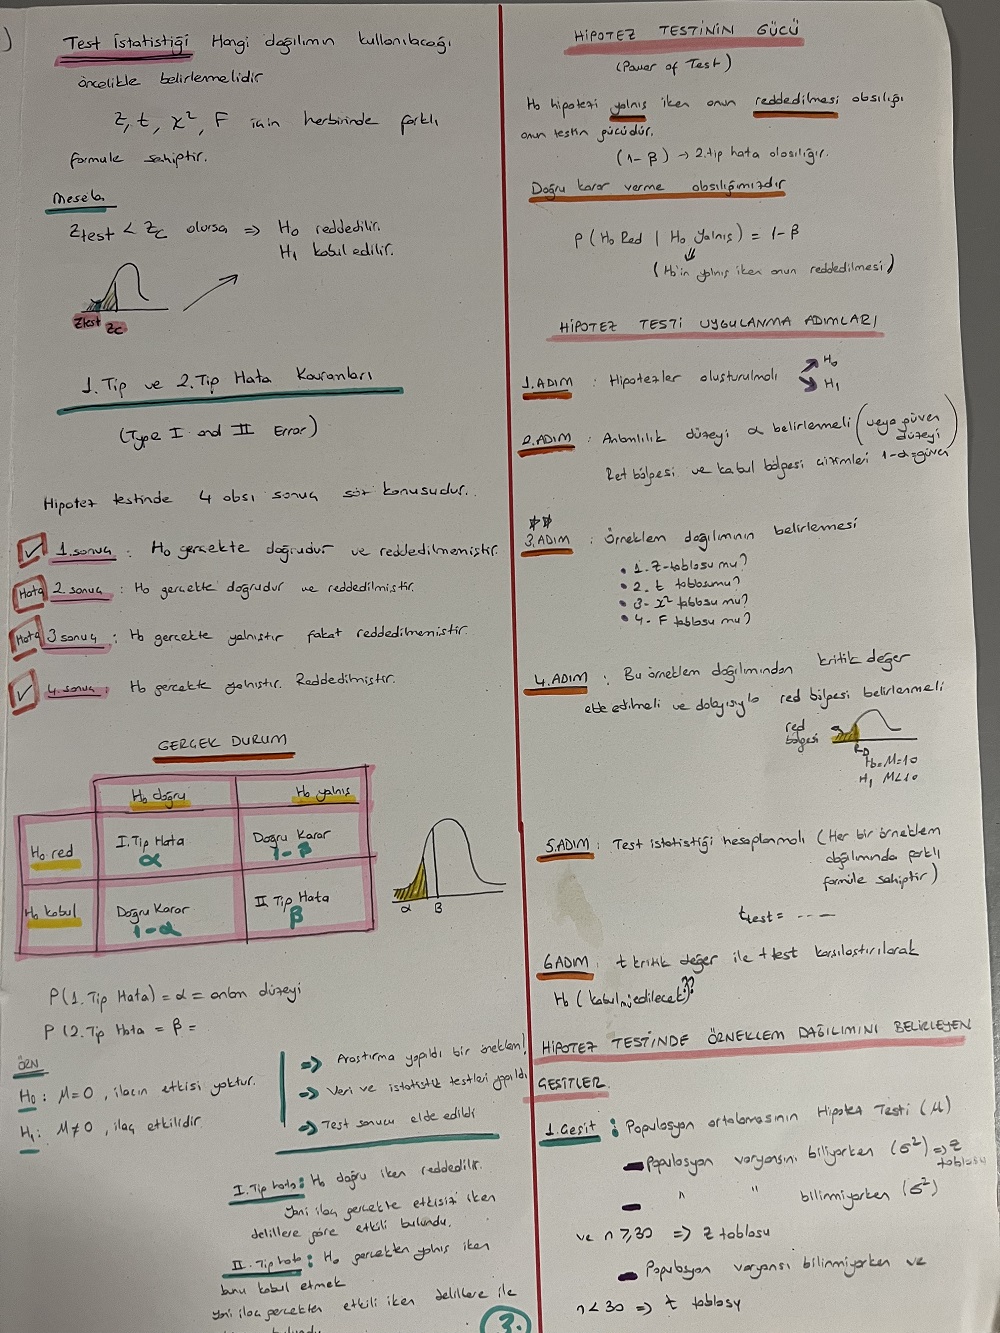 Test İstatistiği Hangi dağılımın kullanılacağı
öncelikle belirlenmelidir
Z, t, x², F için herbirinde farklı
formüle sahiptir.
Mesela.
Ztest < Zc olursa => H₀ reddedilir.
H₁ kabul edilir.
Ztest Zc
1. Tip ve 2. Tip Hata Kavramları
(Type I and II Error)
Hipotez testinde 4 olası sonuç söz konusudur..
✓ 1. sonuç : H₀ gerçekte doğrudur ve reddedilmemiştir.
Hata 2 sonuç : H₀ gerçekte doğrudur ve reddedilmiştir.
Hata 3 sonuç : H₀ gerçekte yalnıştır fakat reddedilmemiştir.
✓ 4. sonuç : H₀ gerçekte yalnıştır. Reddedilmiştir.
GERÇEK DURUM
H₀ doğru H₀ yalnış
H₀ red I. Tip Hata Doğru Karar
α 1-β
H₀ kabul Doğru Karar II Tip Hata
1-α β
α β
P(1. Tip Hata) = α = anlam düzeyi
P(2. Tip Hata = β =
ÖRN
H₀ : M=0 , ilacın etkisi yoktur.
H₁ : M≠0 , ilaç etkilidir
=> Araştırma yapıldı bir örneklem!
=> Veri ve istatistik testleri yapıldı
=> Test sonucu elde edildi
I. Tip hata : H₀ doğru iken reddedilir.
Yani ilaç gerçekte etkisiz iken
delillere göre etkili bulundu.
II. Tip hata : H₀ gerçekten yalnış iken
bunu kabul etmek
yani ilaç gerçekten etkili iken delillere ile
3.
HİPOTEZ TESTİNİN GÜCÜ
(Power of Test)
H₀ hipotezi yalnış iken onun reddedilmesi olasılığı
onun testin gücüdür.
(1-β) → 2. tip hata olasılığır.
Doğru karar verme olasılığımızdır
P(H₀ Red | H₀ Yalnış) = 1-β
(H₀'ın yalnış iken onun reddedilmesi)
HİPOTEZ TESTİ UYGULANMA ADIMLARI
1. ADIM : Hipotezler oluşturulmalı H₀
H₁
2. ADIM : Anlamlılık düzeyi α belirlenmeli (veya güven
düzeyi
Ret bölgesi ve kabul bölgesi çizimleri 1-α=güven
3. ADIM : Örneklem dağılımının belirlemesi
• 1. Z-tablosu mu?
• 2. t tablosumu?
• 3- x² tablosu mu?
• 4- F tablosu mu?
4. ADIM : Bu örneklem dağılımından kritik değer
elde edilmeli ve dolayısıyla red bölgesi belirlenmeli
red
bölgesi
H₀=M=10
H₁ M<10
5. ADIM : Test istatistiği hesaplanmalı (Her bir örneklem
dağılımında farklı
formüle sahiptir)
ttest = - - —
6 ADIM t kritik değer ile t test karşılaştırılarak
H₀ (kabul mi edilecek)??
HİPOTEZ TESTİNDE ÖRNEKLEM DAĞILIMINI BELİRLEYEN
ÇEŞİTLER.
1. Çeşit : Populasyon ortalamasının Hipotez Testi (M)
- Populasyon varyansını biliyorken (σ²) => Z
tablosu
- " " bilinmiyorken (σ²)
ve n≥30 => Z tablosu
- Populasyon varyansı bilinmiyorken ve
n<30 => t tablosy